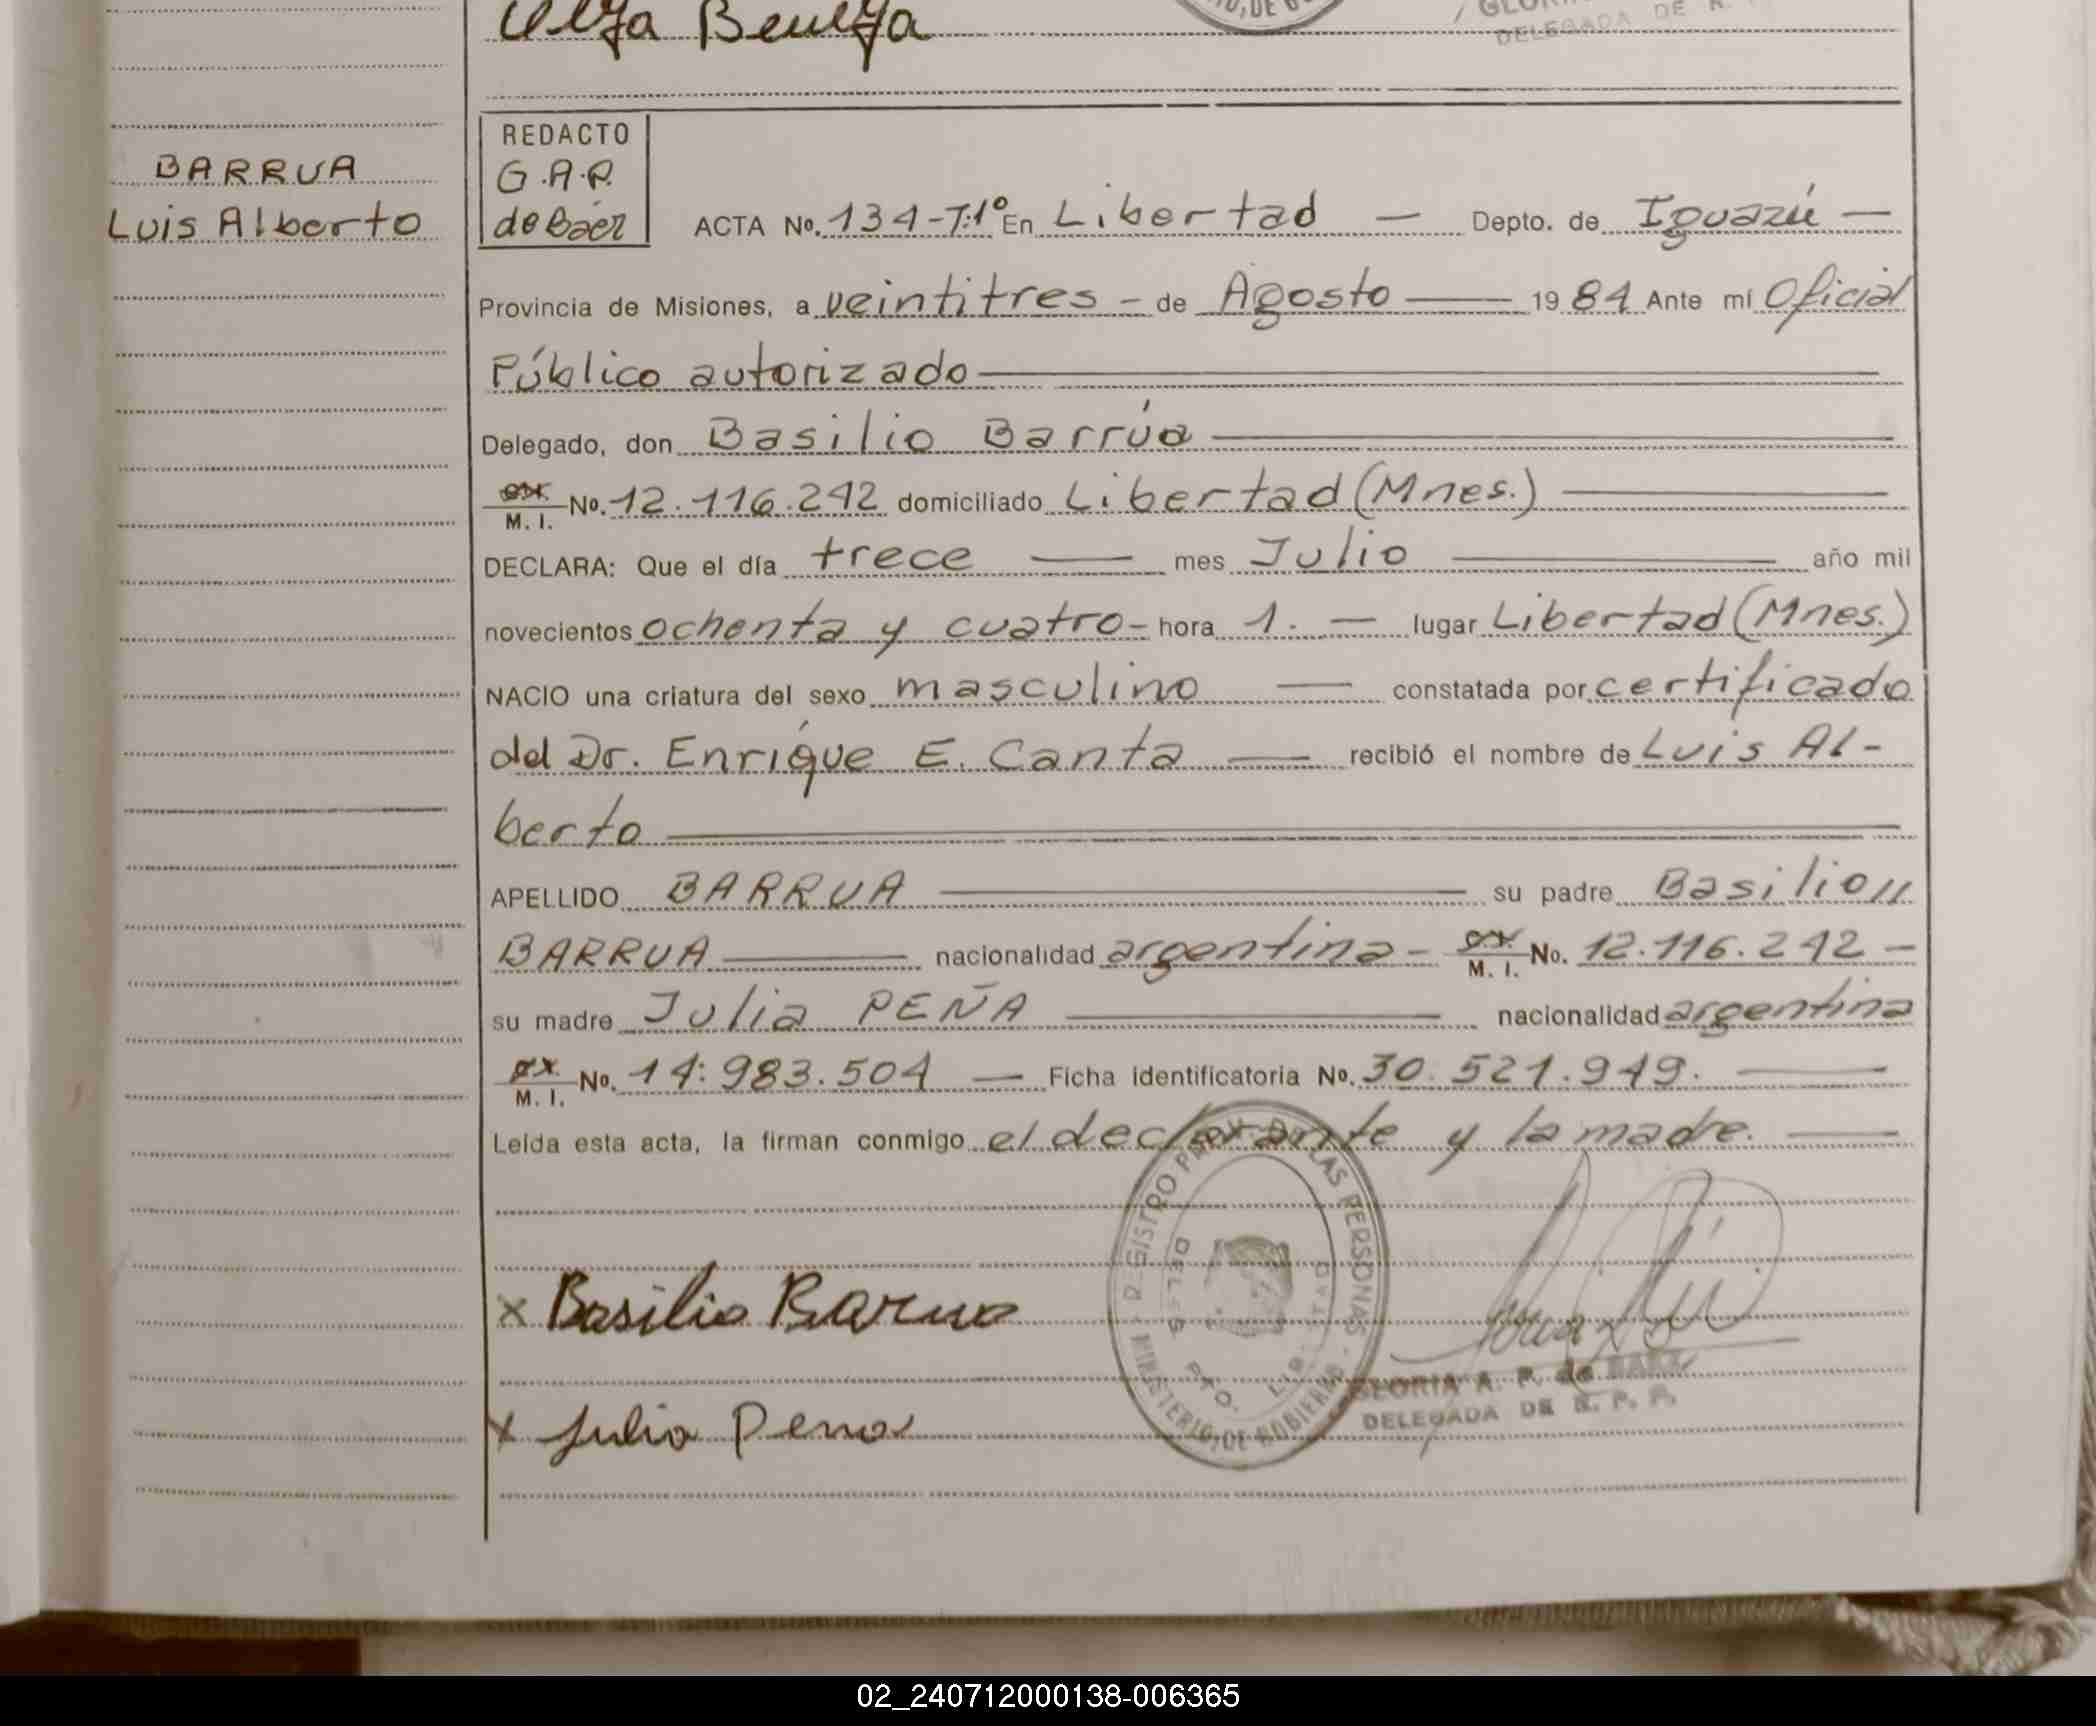 DELEGADA DE R.
BARRUA
Luis Alberto
REDACTO
G.A.P.
de Báez
ACTA No. 134-T:1° En Libertad — Depto. de Iguazú —
Provincia de Misiones, a veintitres - de Agosto — 1984 Ante mí Oficial
Público autorizado
Delegado, don Basilio Barrúa
M. I. No. 12.116.242 domiciliado Libertad (Mnes.)
DECLARA: Que el día trece — mes Julio — año mil
novecientos ochenta y cuatro - hora 1. — lugar Libertad (Mnes.)
NACIO una criatura del sexo masculino — constatada por certificado
del Dr. Enrique E. Canta — recibió el nombre de Luis Al-
berto
APELLIDO BARRUA — su padre Basilio
BARRUA — nacionalidad argentina - M. I. No. 12.116.242 -
su madre Julia PEÑA — nacionalidad argentina
M. I. No. 14:983.504 — Ficha identificatoria No. 30.521.949. —
Leída esta acta, la firman conmigo el declarante y la madre. —
REGISTRO PROV. DE LAS PERSONAS
MINISTERIO DE GOBIERNO
PTO.
x Basilio Barrua
GLORIA A. P. de BAEZ
DELEGADA DE R. P. P.
x Julia Pena
02_240712000138-006365